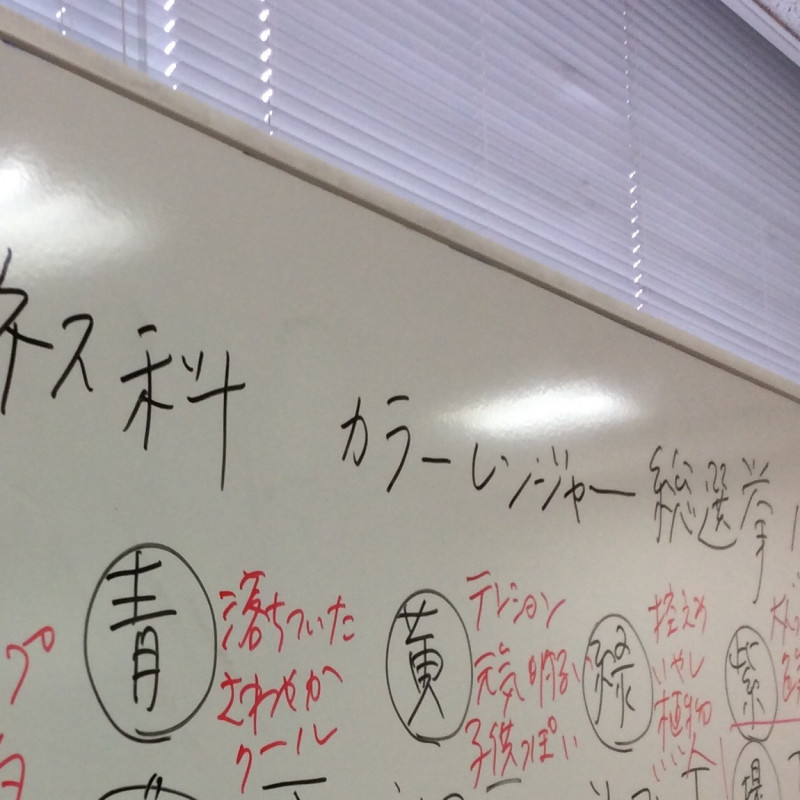 ネス科 カラーレンジャー総選挙
青
落ちついた
さわやか
クール
黄
テンション
元気 明るい
子供っぽい
緑
控えめ
いやし
植物
いい人
紫